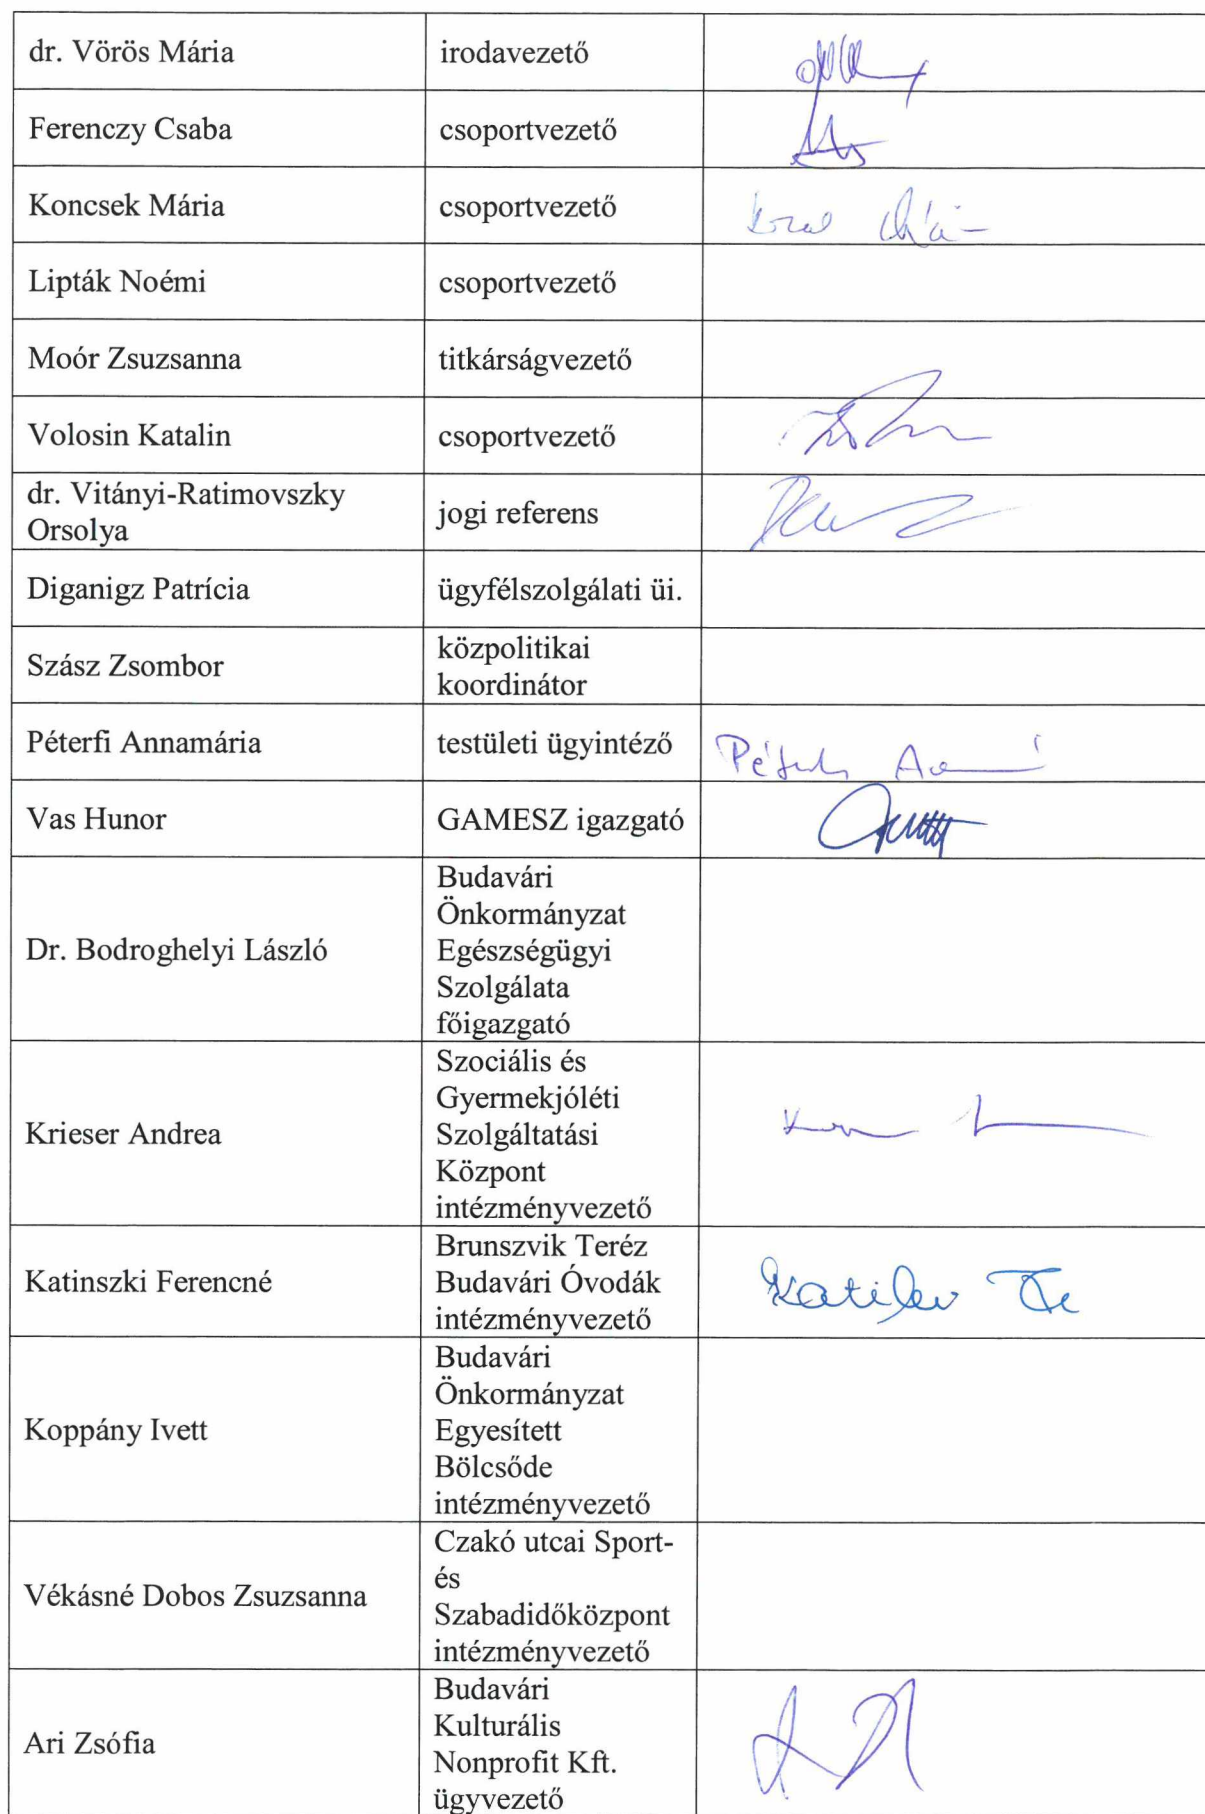 dr. Vörös Mária
irodavezető
Ferenczy Csaba
csoportvezető
Koncsek Mária
csoportvezető
Lipták Noémi
csoportvezető
Moór Zsuzsanna
titkárságvezető
Volosin Katalin
csoportvezető
dr. Vitányi-Ratimovszky
Orsolya
jogi referens
Diganigz Patrícia
ügyfélszolgálati üi.
Szász Zsombor
közpolitikai
koordinátor
Péterfi Annamária
testületi ügyintéző
Vas Hunor
GAMESZ igazgató
Dr. Bodroghelyi László
Budavári
Önkormányzat
Egészségügyi
Szolgálata
főigazgató
Krieser Andrea
Szociális és
Gyermekjóléti
Szolgáltatási
Központ
intézményvezető
Katinszki Ferencné
Brunszvik Teréz
Budavári Óvodák
intézményvezető
Koppány Ivett
Budavári
Önkormányzat
Egyesített
Bölcsőde
intézményvezető
Végásné Dobos Zsuzsanna
Czakó utcai Sport-
és
Szabadidőközpont
intézményvezető
Ari Zsófia
Budavári
Kulturális
Nonprofit Kft.
ügyvezető